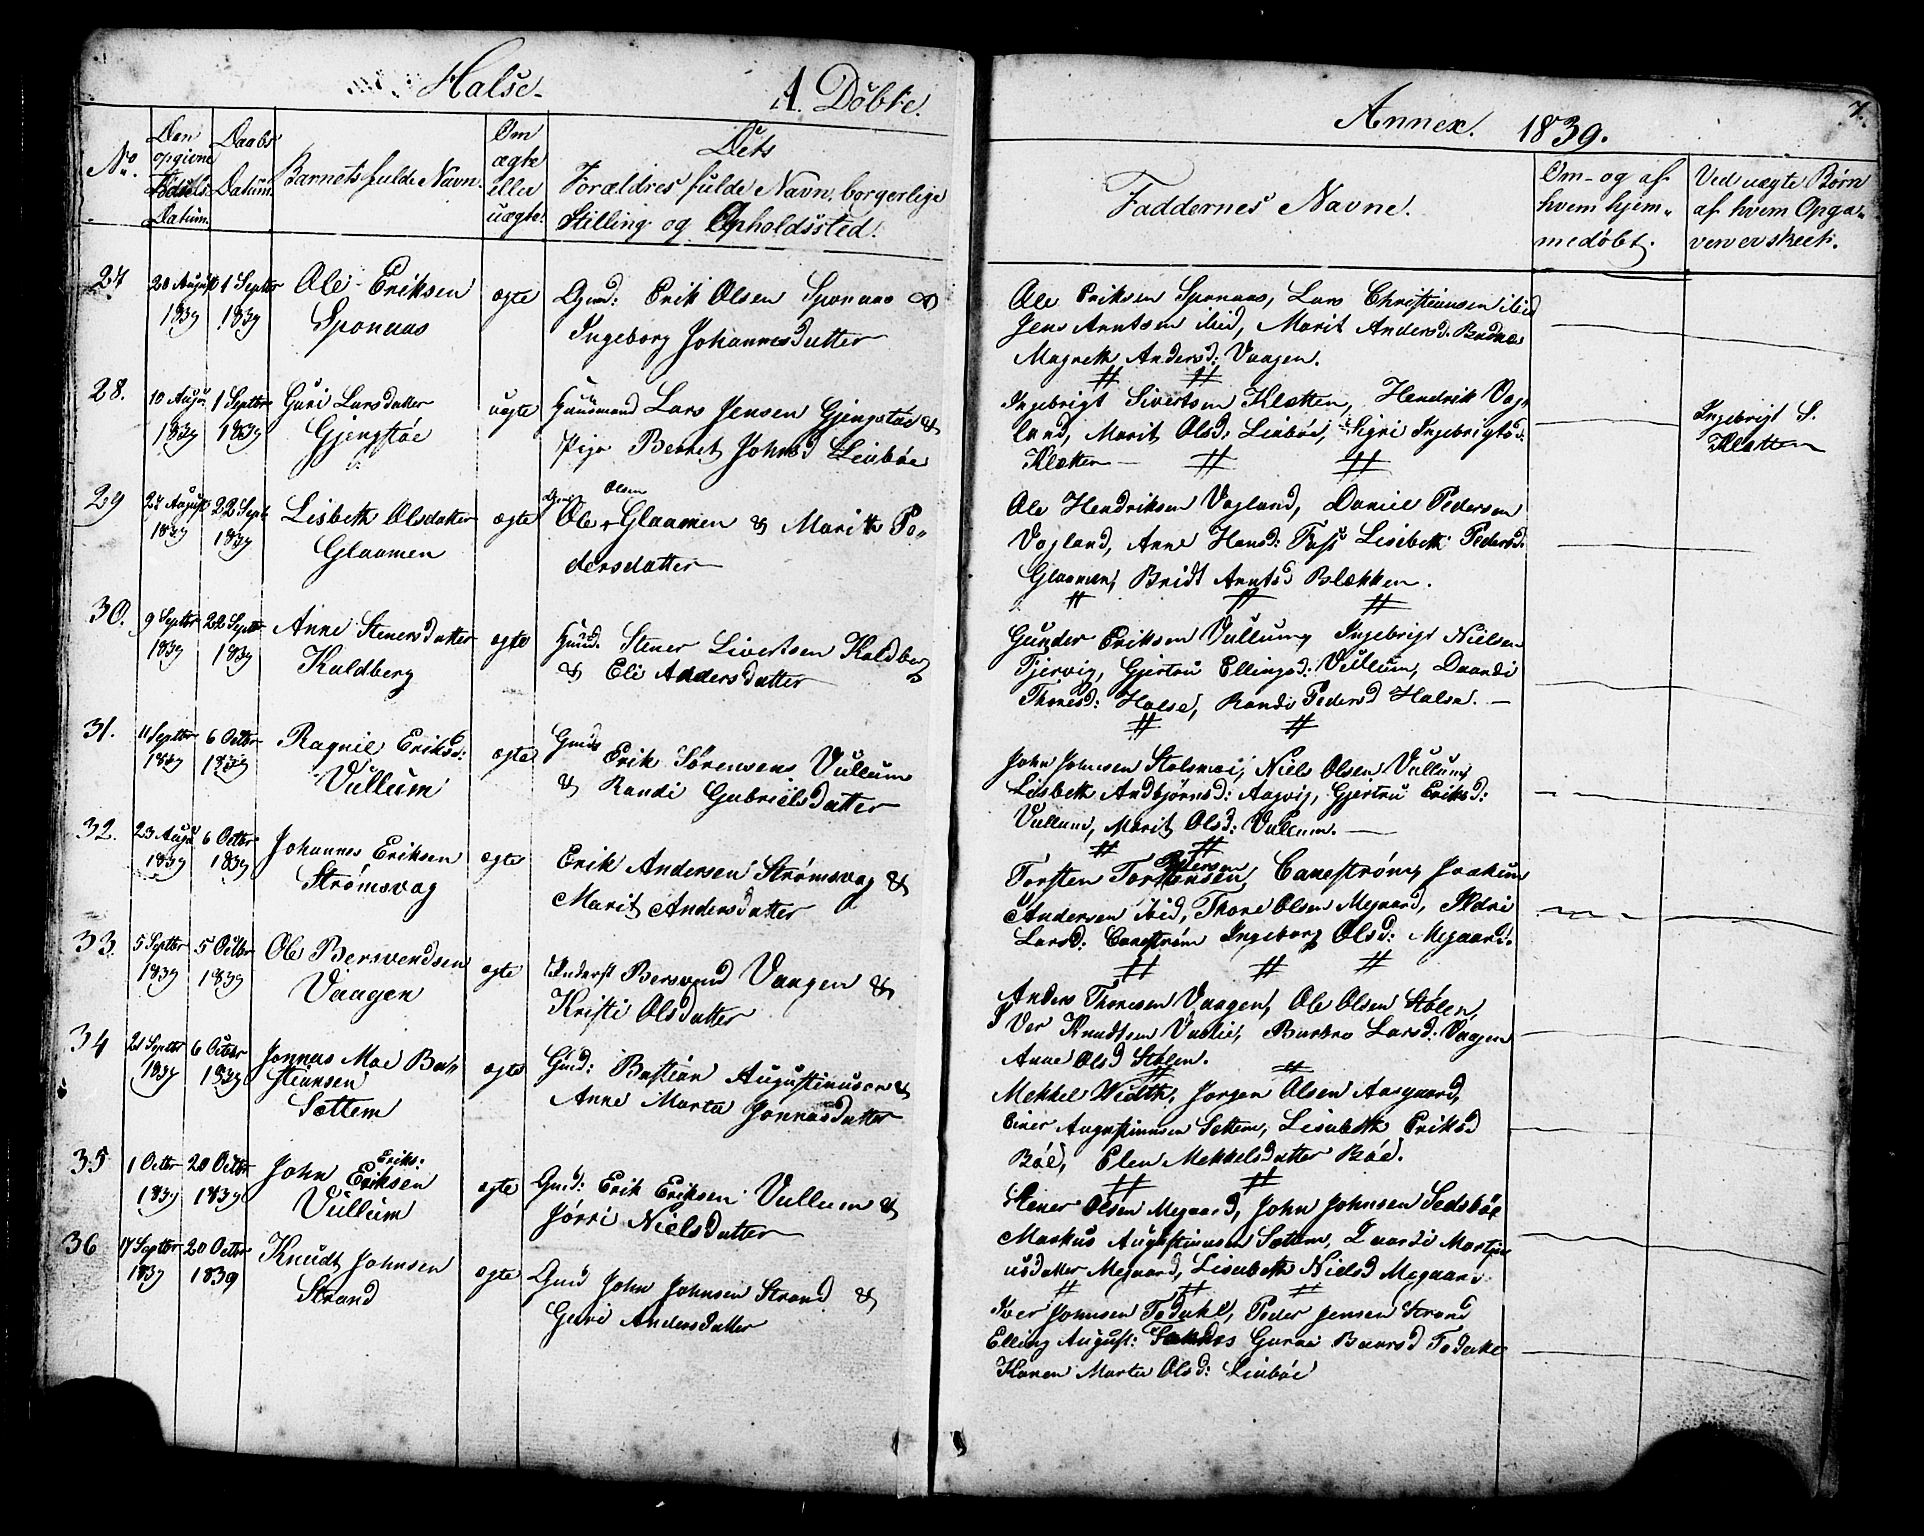 Halse
A. Døbte.
No.
Den opgivne Fødsels Datum.
Daabs Datum.
Barnets fulde Navn.
Om ægte eller uægte.
Dets Forældres fulde Navn, borgerlige Stilling og Opholdssted.
27 20 August 1839 1 Septbr 1839 Ole Eriksen ægte Gmd: Erik Olsen Sponaas &
Sponaas Ingeborg Johannesdatter
28. 10 Augu 1839 1 Septbr 1839 Guri Larsdatter uægte Huusmand Lars Jensen Gjengstøe &
Gjengstøe Pige Berret Johnsd Liabøe
29 24 August 1839 22 Sept 1839 Lisbeth Olsdatter ægte Ole Olsen Glaamen & Marith Pe-
Glaamen dersdatter
30. 9 Septbr 1839 22 Septbr 1839 Anne Stenersdatter ægte Huusd. Stener Sivertsen Kaldberg
Kaldberg & Eli Andersdatter
31. 11 Septbr 1839 6 Octbr 1839 Ragnil Eriksd: ægte Gmd: Erik Sørensen Vullum
Vullum & Randi Gabrielsdatter
32. 23 Augu 1839 6 Octbr 1839 Johannes Eriksen ægte Erik Andersen Strømsvag &
Strømsvag Marit Andersdatter
33. 5 Septbr 1839 5 Octbr 1839 Ole Berswendsen ægte Inderst Bersvend Vaagen &
Vaagen Kristi Olsdatter
34 21 Septbr 1839 6 Octbr 1839 Jonnas Moe Ba- ægte Gmd: Bastian Augustinusen &
stiansen Anne Marta Jonnasdatter
Sættem
35 1 Octbr 1839 20 Octbr 1839 John Eriksen Eriks: ægte Gmd: Erik Eriksen Vullum &
Vullum Jørri Nielsdatter
36 17 Septbr 1839 20 Octbr 1839 Knudt Johnsen ægte Gmd John Johnsen Strand &
Strand Guri Andersdatter
Annex. 1839.
7.
Faddernes Navne.
Om- og af hvem hjemmedøbt.
Ved uægte Børn af hvem Opgaven er skeet.
Ole Eriksen Sponaas, Lars Christiansen ibid
Jens Arntsen ibid, Marit Andersd.
Magreth Andersd: Vaagen.
Ingebrigt Sivertsen Kletten, Hendrik Vag-
land, Marit Olsd: Liabøe, Sigri Ingebrigtsd:
Kletten
Ingebrigt S.
Kletten
Ole Hendriksen Vagland, Daniel Pedersen
Vagland, Anne Hansd: Lisebeth Pedersd:
Glaamen, Bridt Arntsd Blekken.
Gunder Eriksen Vullum, Ingebrigt Nielsen
Fjervig, Gjertru Ellingsd: Vullum, Daardi
Thoresd: Halse, Randi Pedersd Halse.
John Johnsen Stolsmoi, Niels Olsen Vullum,
Lisbeth Andbjørnsd: Aagvig, Gjertru Eriksd:
Vullum, Marit Olsd: Vullum.
Torsten Torstensen Pedersen Canestrøm, Joakim
Andersen ibid, Thore Olsen Megaard, Ildri
Larsd: Canestrøm Ingeborg Olsd: Megaard.
Anders Thoresen Vaagen, Ole Olsen Stølen,
Iver Knudtsen Vaglie, Barbro Larsd: Vaagen
Anne Olsd Stølen.
Mekkel Width, Jørgen Olsen Aasgaard,
Einer Augustinusen Settem, Lisabeth Eriksd
Bøe, Elen Mekkelsdatter Bøe.
Stener Olsen Megaard, John Johnsen Sedsbøe
Markus Augustinusen Settem, Daardi Martin
usdatter Megaard, Lisabeth Nielsd Megaard
Iver Johnsen Todahl, Peder Jensen Strand
Elling August: Guroe Baarsd Todahl
Karen Marta Olsd: Liabøe